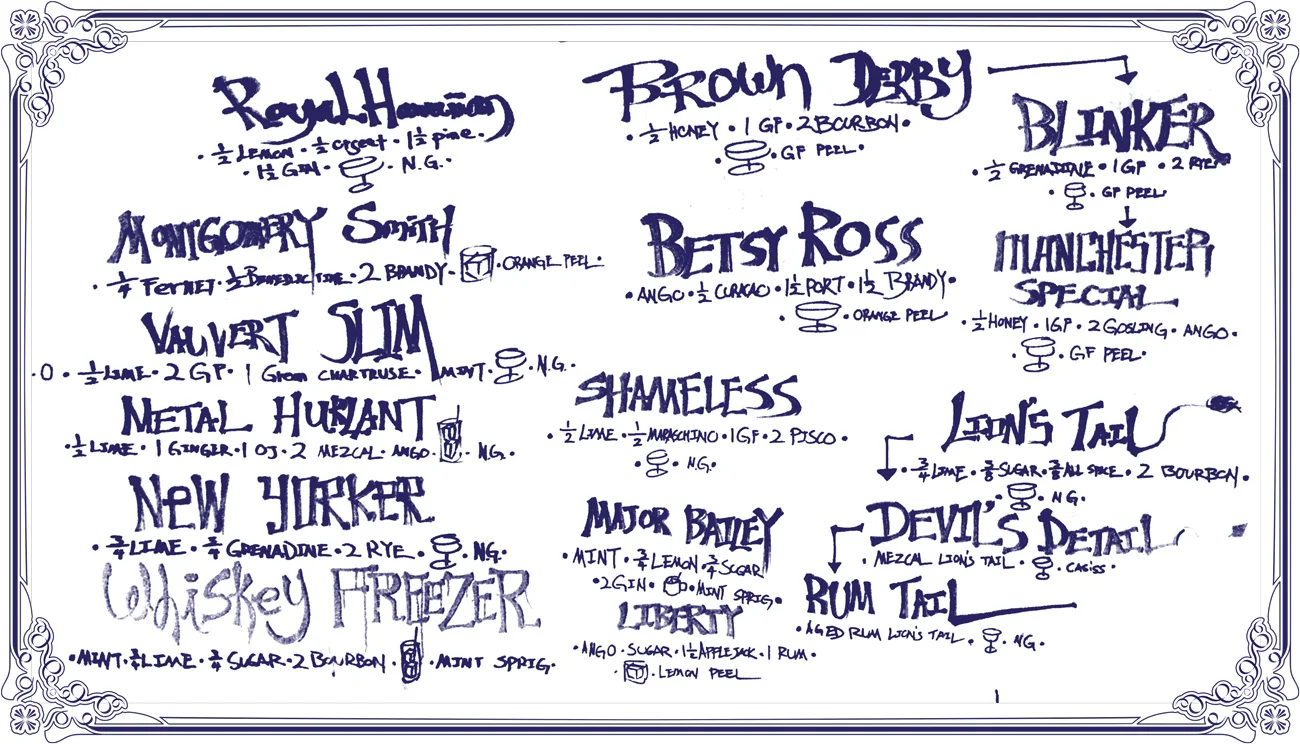 Royal Hawaiian
· ½ LEMON · ½ orgeat · 1½ pine ·
· 1½ GIN · · N.G. ·
MONTGOMERY SMITH
· ¼ FERNET · ½ BENEDICTINE · 2 BRANDY · · ORANGE PEEL ·
VAUVERT SLIM
· O · ½ LIME · 2 GF · 1 Green CHARTRUSE · MINT · · N.G. ·
METAL
· ½ LIME · 1 GINGER · 1 OJ · 2 MEZCAL · ANGO · · N.G. ·
NEW YORKER
· ¾ LIME · ¾ GRENADINE · 2 RYE · · NG ·
Whiskey FREEZER
· MINT · ¾ LIME · ¾ SUGAR · 2 BOURBON · · MINT SPRIG ·
BROWN DERBY
· ½ HONEY · 1 GF · 2 BOURBON ·
· · GF PEEL ·
BETSY ROSS
· ANGO · ½ CURACAO · 1½ PORT · 1½ BRANDY ·
· · ORANGE PEEL
SHAMELESS
· ½ LIME · ½ MARASCHINO · 1GF · 2 PISCO ·
· · N.G. ·
MAJOR BAILEY
· MINT · ¾ LEMON · ¾ SUGAR
· 2 GIN · · MINT SPRIG ·
LIBERTY
· ANGO · SUGAR · 1½ APPLEJACK · 1 RUM ·
· · LEMON PEEL
BLINKER
· ½ GRENADINE · 1GF · 2 RYE
· · GF PEEL
MANCHESTER
SPECIAL
· ½ HONEY · 1GF · 2 GOSLING · ANGO ·
· · GF PEEL ·
LION'S TAIL
· ¾ LIME · SUGAR · ALL SPICE · 2 BOURBON ·
· · NG ·
DEVIL'S DETAIL
· MEZCAL LION'S TAIL · · CASSIS ·
RUM TAIL
· AGED RUM LION'S TAIL · · NG ·